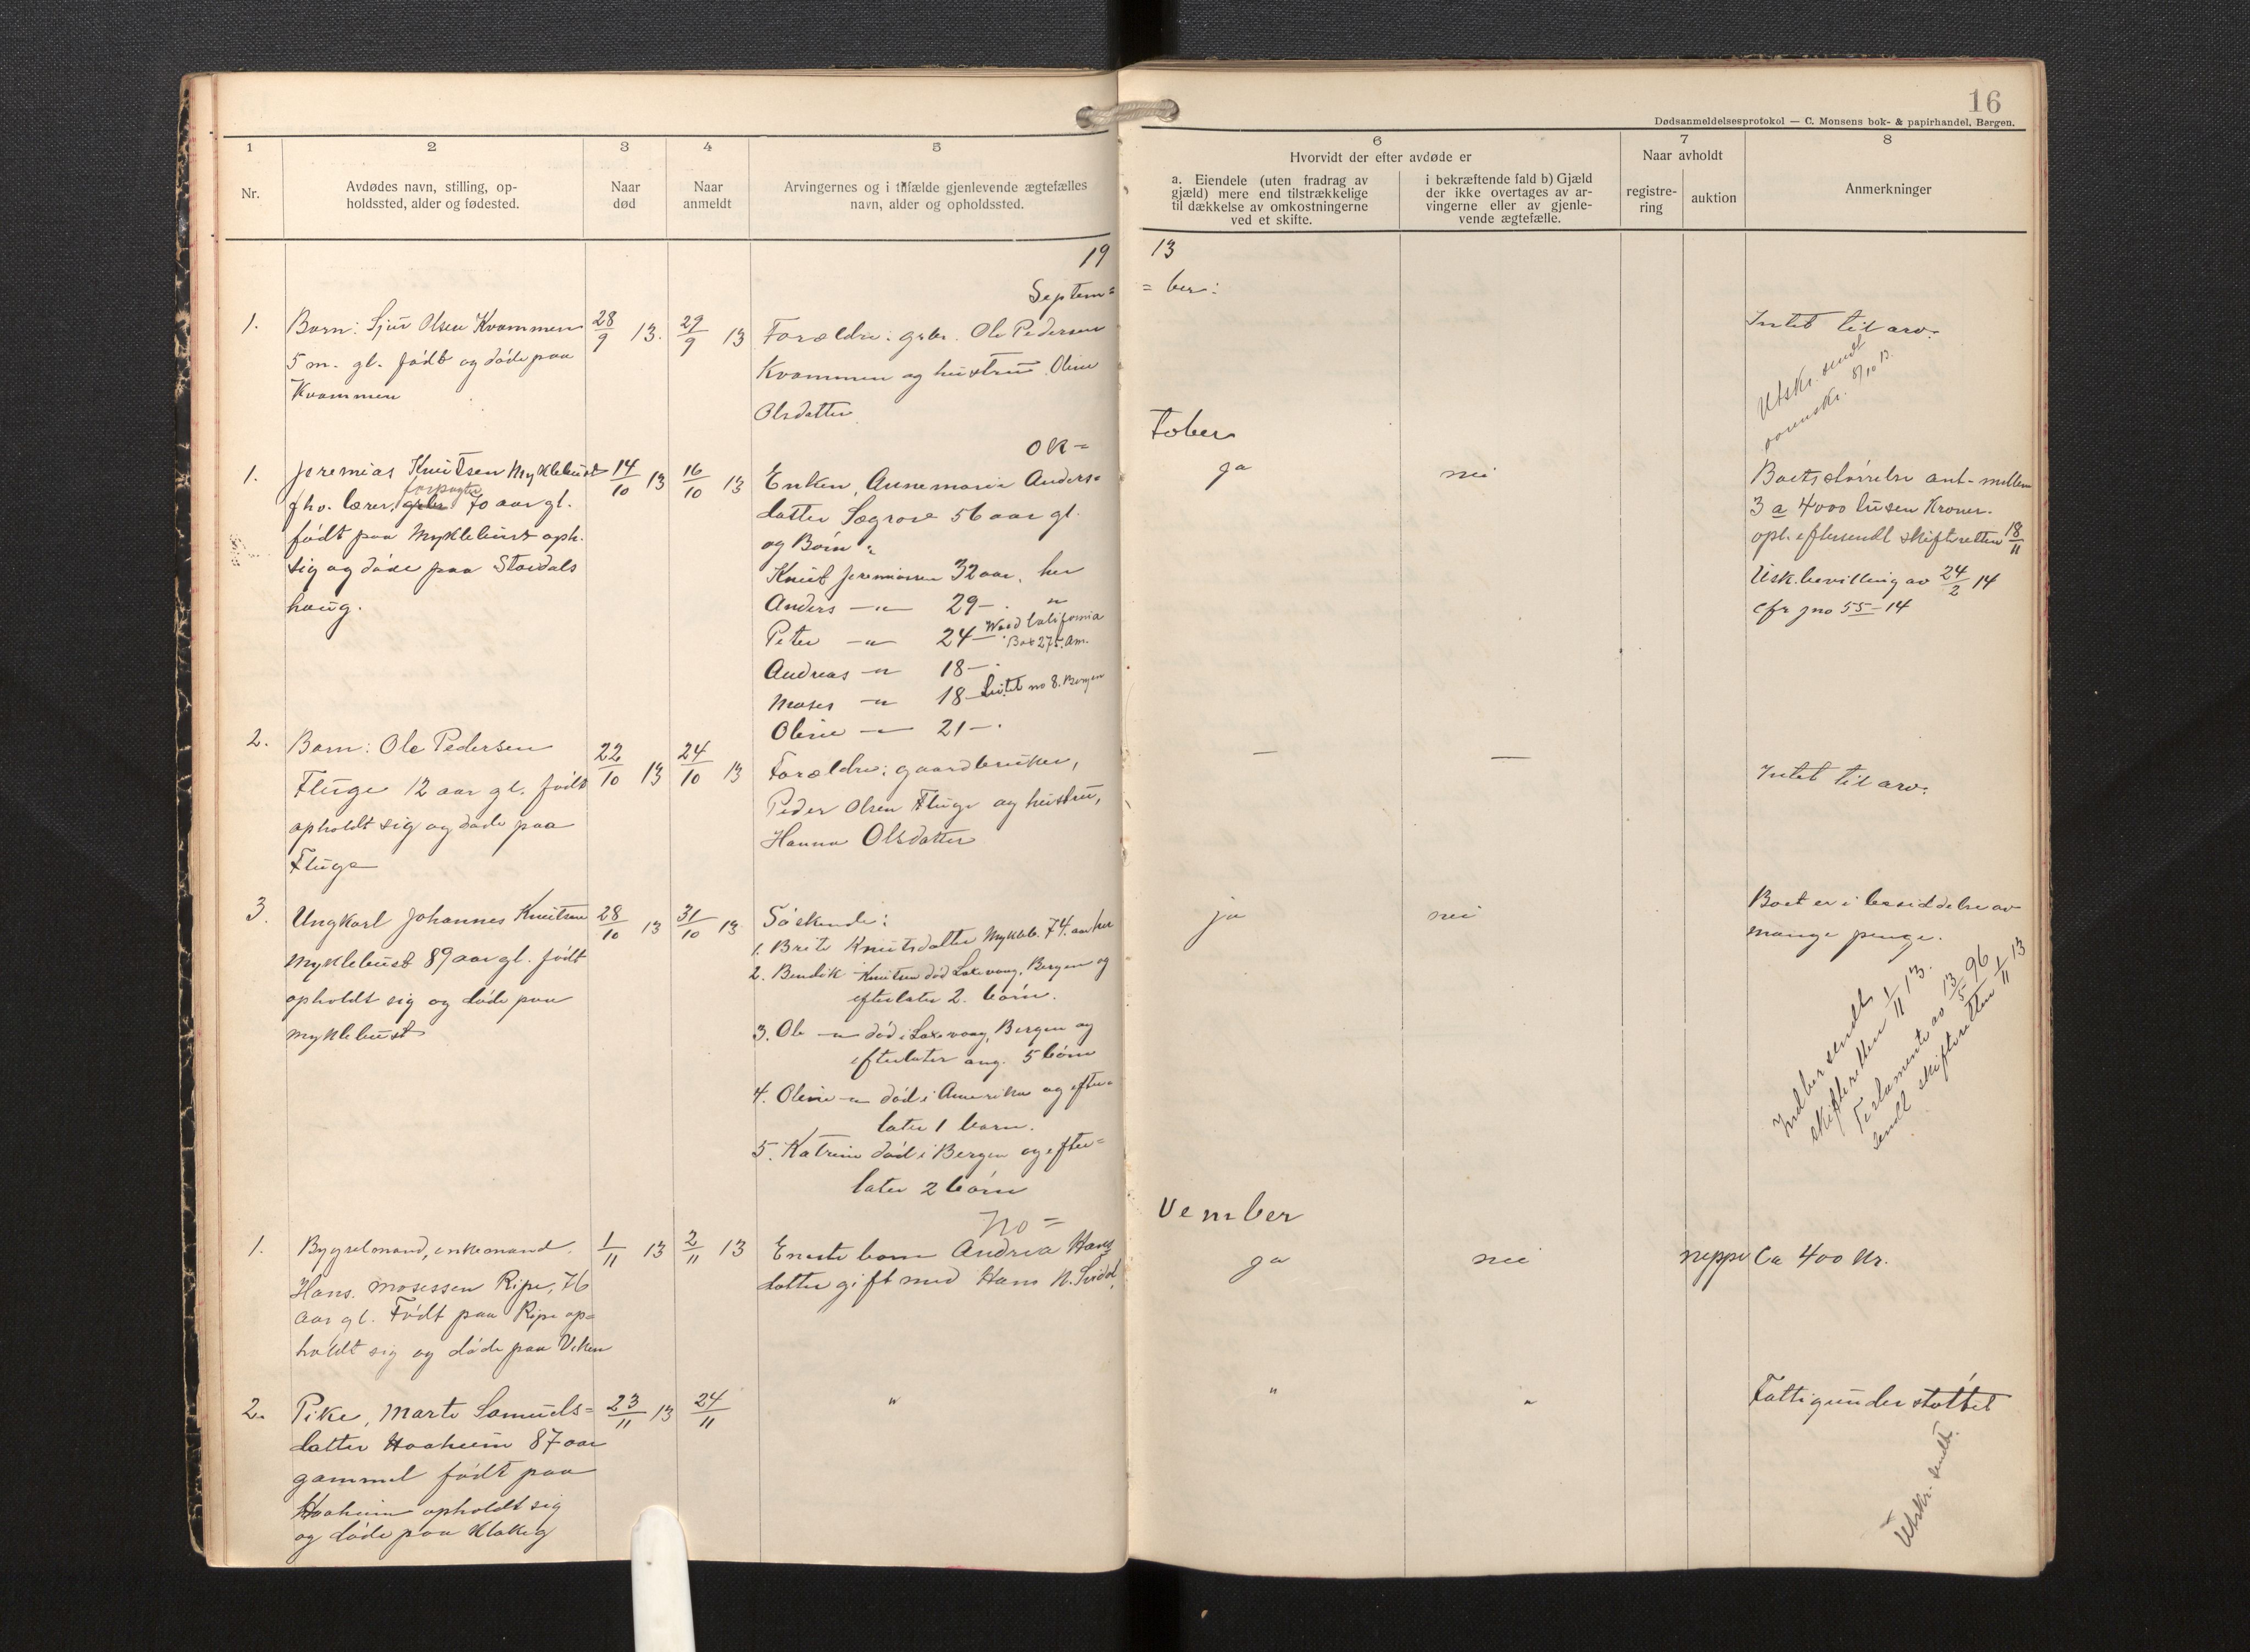 16
Dødsanmeldelsesprotokol — C. Monsens bok- & papirhandel, Bergen.
1
Nr.
2
Avdødes navn, stilling, op-
holdssted, alder og fødested.
3
Naar
død
4
Naar
anmeldt
5
Arvingernes og i tilfælde gjenlevende ægtefælles
navn, alder og opholdssted.
6
Hvorvidt der efter avdøde er
a. Eiendele (uten fradrag av
gjæld) mere end tilstrækkelige
til dækkelse av omkostningerne
ved et skifte.
i bekræftende fald b) Gjæld
der ikke overtages av ar-
vingerne eller av gjenle-
vende ægtefælle.
7
Naar avholdt
registre-
ring
auktion
8
Anmerkninger
19 13
Septem= =ber:
1.
Barn: Sjur Olsen Kvammen
5 m. gl. født og døde paa
Kvammen
28/9 13.
29/9 13
Forældre: gbr. Ole Pedersen
Kvammen og hustru Oline
Olsdatter
Intet til arv.
Utskr. sendt
8/10 13
Ok= tober
1.
Jeremias Knutsen Myklebust
fhv. lærer, gbr. 70 aar gl.
født paa Myklebust oph.
sig og døde paa Stordals
haug.
14/10 13
16/10 13
Enken, Annemarie Anders=
datter Søgrov 56 aar gl.
og Børn:
Knut Jeremiassen 32 aar, her
Anders —"— 29 — "
Peter —"— 24 — Weed California
Box 275. Am.
Andreas —"— 18 —
Moses —"— 18 — no 8. Bergen
Oline —"— 21 —.
ja
nei
Boets størrelse ant. mellem
3 a 4000 tusen Kroner.
opl. eftersendt skifteretten 18/11
Usk.bevilling av 24/2 14
cfr jno 55-14
2.
Barn: Ole Pedersen
Fluge 12 aar gl. født
opholdt sig og døde paa
Fluge
22/10 13
24/10 13
Forældre: gaardbruker,
Peder Olsen Fluge og hustru,
Hanna Olsdatter
—
—
Intet til arv.
3.
Ungkarl Johannes Knutsen
Myklebust 89 aar gl. født
opholdt sig og døde paa
Myklebust
28/10 13
31/10 13
Søskende:
1. Brite Knutsdatter Mykleb. 74 aar her
2. Bendik Knutsen død Laxevaag, Bergen og
efterlater 2 børn.
3. Ole —"— død i Laxevaag, Bergen og
efterlater ang. 5 børn
4. Oline —"— død i Amerika og efter=
later 1 barn.
5. Katrine død i Bergen og efter=
later 2 børn
ja
nei
Boet er i besiddelse av
mange penge.
Indber sendt
skifteretten 1/11 13.
Testamente av 13/5 96
sendt skifteretten 1/11 13
No= vember
1.
Bygselmand, enkemand.
Hans. Mosessen Ripe, 76
aar gl. Født paa Ripe op=
holdt sig og døde paa Viken
1/11 13
2/11 13
Eneste barn Andrea Hans
datter gift med Hans N.
ja
nei
neppe
Ca 400 Kr.
2.
Pike, Marte Samuels=
datter Haaheim 87 aar
gammel født paa
Haaheim opholdt sig
og døde paa Klakeg
23/11 13
24/11
"
"
"
Fattigunderstøttet
Utskr. sendt.